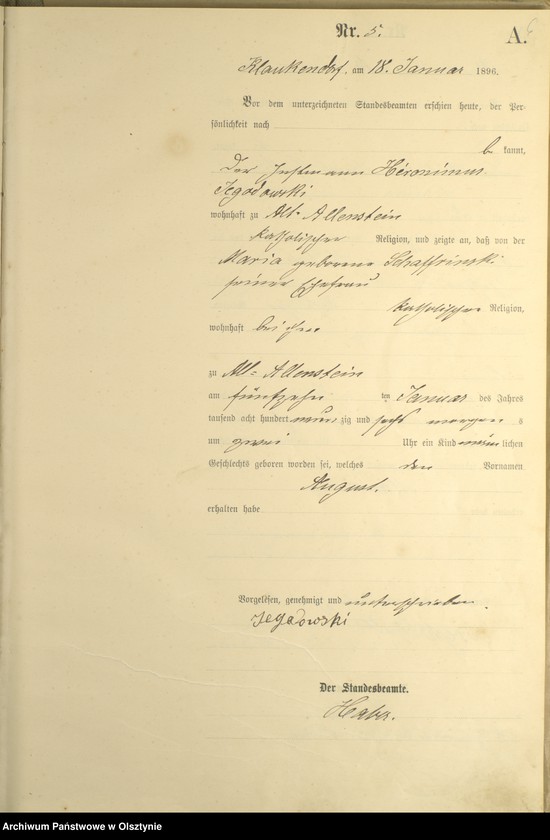 Nr. 5.
A.
Klaukendorf, am 18. Januar 1896.
Vor dem unterzeichneten Standesbeamten erschien heute, der Per-
sönlichkeit nach
b kannt,
der Hieronimus
Jegodowski
wohnhaft zu Alt-Allenstein
katholischer Religion, und zeigte an, daß von der
Maria geborene
seiner Ehefrau
katholischer Religion,
wohnhaft bei ihm
zu Alt-Allenstein
am fünfzehn ten Januar des Jahres
tausend acht hundert neun zig und sechs morgen s
um zwei Uhr ein Kind männ lichen
Geschlechts geboren worden sei, welches den Vornamen
August.
erhalten habe
Vorgelesen, genehmigt und unterschrieben.
Jegadowski
Der Standesbeamte.
Archiwum Państwowe w Olsztynie